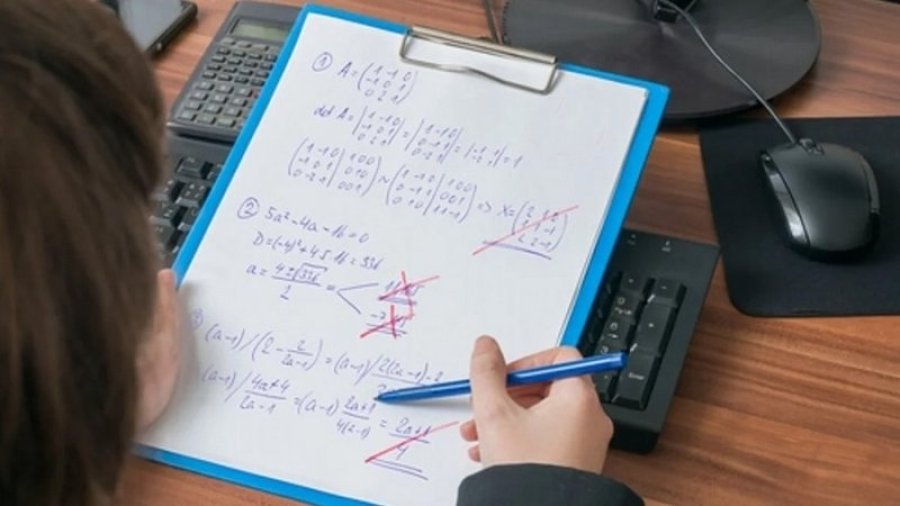 ① A = ( 1 -1 0
-1 0 1
0 2 1 )
det A = | 1 -1 0
-1 0 1
0 2 1 | = | 1 -1 0
0 -1 1
0 2 1 | = | -1 1
-2 1 | = 1
( 1 -1 0 | 1 0 0
-1 0 1 | 0 1 0
0 -2 1 | 0 0 1 ) ~ ( 1 -1 0 | 1 0 0
0 -1 1 | 0 0 1
0 1 0 | 1 1 -1 ) => X =
② 5a² - 4a - 16 = 0
D = (-4)² + 4·5·16 = 336
a = 4 ± √336 / 2 =
(a-1) / (2 - 2/2a-1) = (a-1) / 2(2a-1)-2
(a-1) / 4a+4 / 2a-1 = (a-1) 2a+1 / 4(2-1) = 2a+1 / 4
Enter